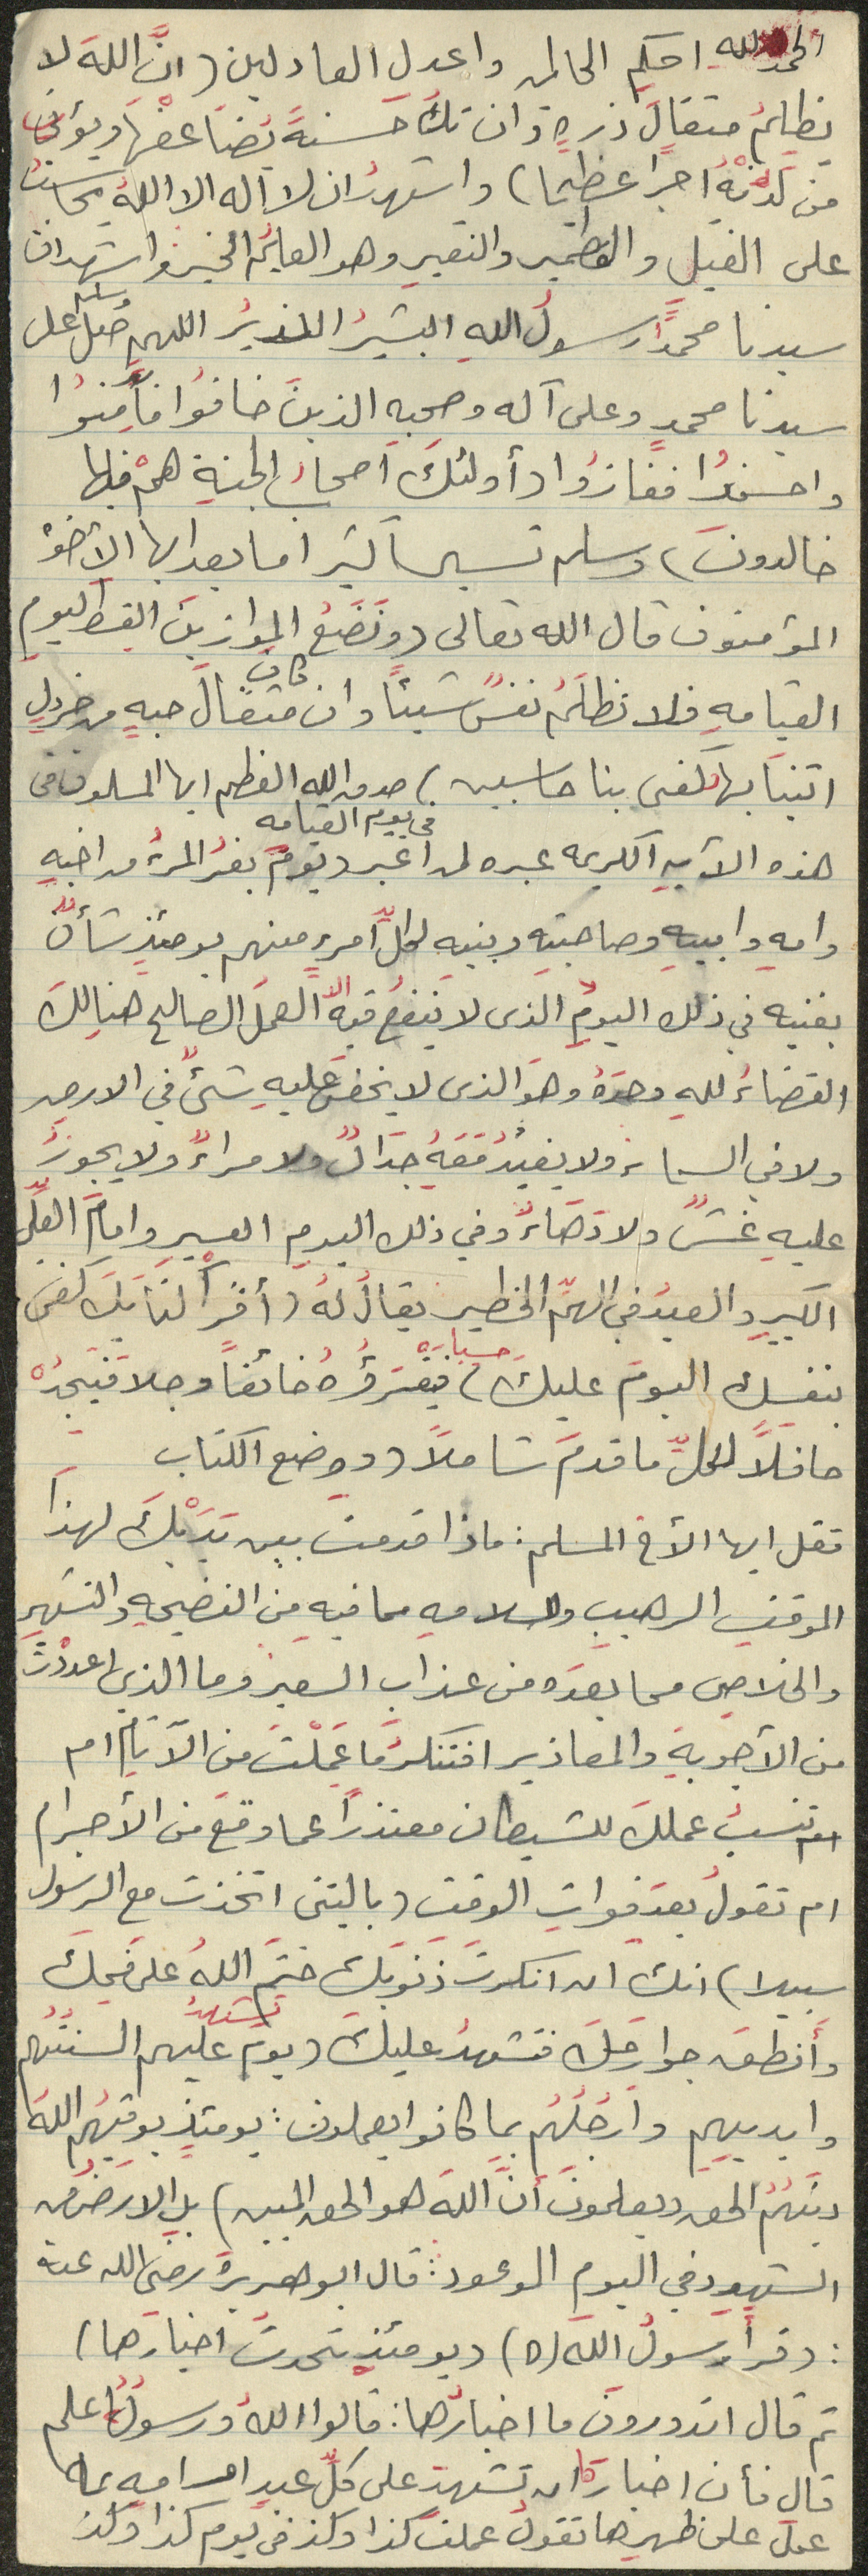 الحمد لله احكم الحاكمين واعدل العادلين (انَّ اللهَ لا
يظلِمُ مثقالَ ذرهٍ وان تكُ حسنةً يُضاعفْها ويؤتِ
من لَدُنْهُ اجراً عظيما) واشهدُ ان لا اله الا اللهُ يحاسبُ
على الفتيل والقطمير والنقيرِ وهو العليمُ الخبيرُ واشهدُ ان
سيدنا محمدًا رسولُ اللهِ البشيرُ النذيرُ اللهمَّ صَلِّ وسلم على
سيدنا محمدٍ وعلى آله وصحبهِ الذينَ خافوُا فأَمِنُوا
واحسنوا ففازوُا (أولئكَ اصحابُ الجنةِ همْ فيها
خالدونَ) وسلم تسليماً كثيرا اما بعد ايها الأخوْ
المؤمنون قال الله تعالى (ونَضَعُ الموازينَ القسطَ ليومِ
القيامهِ فلا تظلَمُ نفسٌ شيئاً وان كان مثقالَ حبهٍ من خردلٍ
اتينَا بها وكفى بنا حاسبين) صدق الله العظيم ايها المسلمون في
هذه الآيهِ الكريمه عبره لمن اعتبر في يوم القيامه (يومَ يفرُ المرءُ من اخيهِ
وامهِ وابيهِ وصاحبتهِ وبنيه لكلِّ امرءٍ منهم يومئذٍ شأنٌ
يغنيه) في ذلك اليومِ الذى لا ينفعُ فيه الاَّ العملُ الصالح هنالكَ
القضاءُ للهِ وحدَهُ وهوَ الذى لا يخفى عليهِ شئٌ في الارضِ
ولا في السماءِ ولا يفيدُ مَعَهُ جدالٌ ولا مراءٌ ولا يجوزُ
عليهِ غشٌ ولا دهاءٌ وفي ذلك اليومِ العسير وامامَ العليِّ
الكبيرِ والعبدُ في الهمِّ الخطير يقالُ لهُ (أقرأْ كتابَكَ كفى
بنفسِك اليومَ عليكَ حسيبا) فيَقْرؤُهُ خائفاً وجلا فيَجدُهُ
حافلاً لكلِّ ما قدمَ شاملاً (ووضع الكتاب
فقل ايها الأخ المسلم: ماذا قدمت بين يَدَيْكَ لهذا
الموقفِ الرهيبِ والسلامهِ مما فيهِ من الفضيحهِ والتشهيرِ
والخلاصِ مما بعدَه من عذابِ السعيرِ وما الذي اعددْتَ
من الأجوبةِ والمعاذير افتنكرُ ما عَمِلْتَ من الآثام ام
تنسبُ عملكَ للشيطان معتذراً عما وقعَ من الأجرام
ام تقولُ بعدَ فواتِ الوقت (ياليتنى اتخذت مع الرسول
سبيلا) انك ان انكرتَ ذنوبَكَ ختمَ اللهُ على فمِكَ
وأنطقَ جوارحَكَ فتشهدُ عليكَ (يومَ تشهدُ عليهم السنتُهم
وايديهِم وأرجُلُهُم بما كانوا يعملون: يومئذٍ يوفيهُم اللهَ
دينَهُمُ الحق ويعلمونَ أنَّ اللهَ هو الحق المبين) بلِ الارضُ من
الشهودِ في اليوم الموعود: قال ابو هريرةَ رضىَ الله عنه
: (قرأَ رسولُ اللهَ (ص) (يومئذٍ تحدثُ اخبارَها)
ثم قال اتدرون ما اخبارُها: قالوا اللهُ ورسولُهُ اعلم
قال فأن اخبارَها ان تشهدَ على كلِّ عبدٍ او امهٍ بما
عمل على ظهرِها تقولُ عملتَ كذا وكذ في يوم كذا وكذ